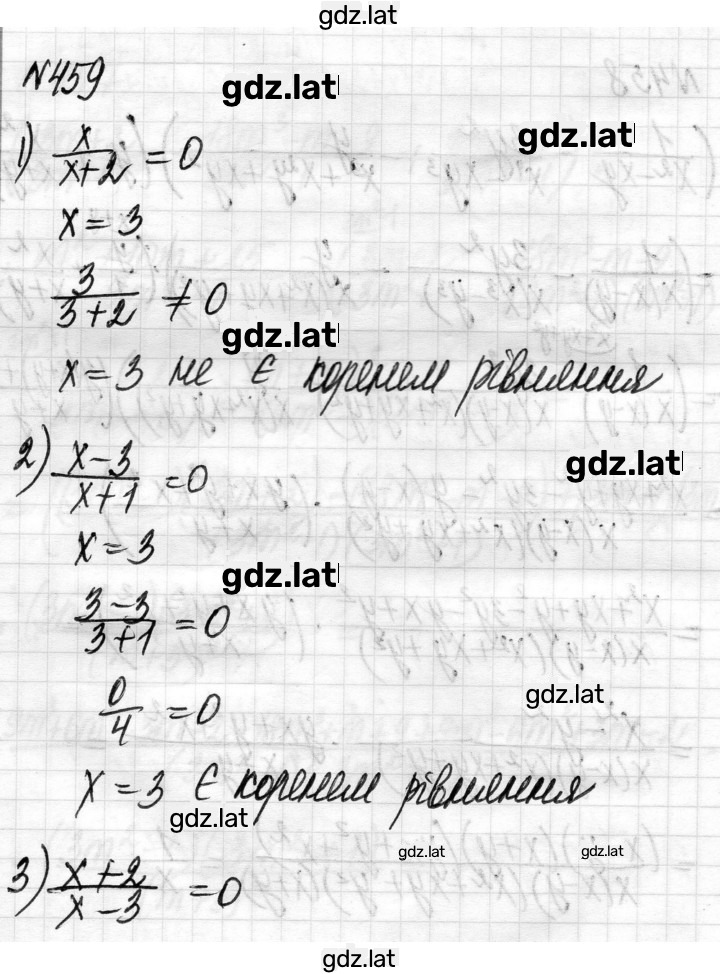 gdz.lat
№459
gdz.lat
gdz.lat
1) x/(x+2) = 0
x = 3
3/(3+2) ≠ 0
gdz.lat
x = 3 не є коренем рівняння
2) (x-3)/(x+1) = 0
gdz.lat
x = 3
gdz.lat
(3-3)/(3+1) = 0
gdz.lat
0/4 = 0
x = 3 є коренем рівняння
gdz.lat
gdz.lat
gdz.lat
3) (x+2)/(x-3) = 0
gdz.lat